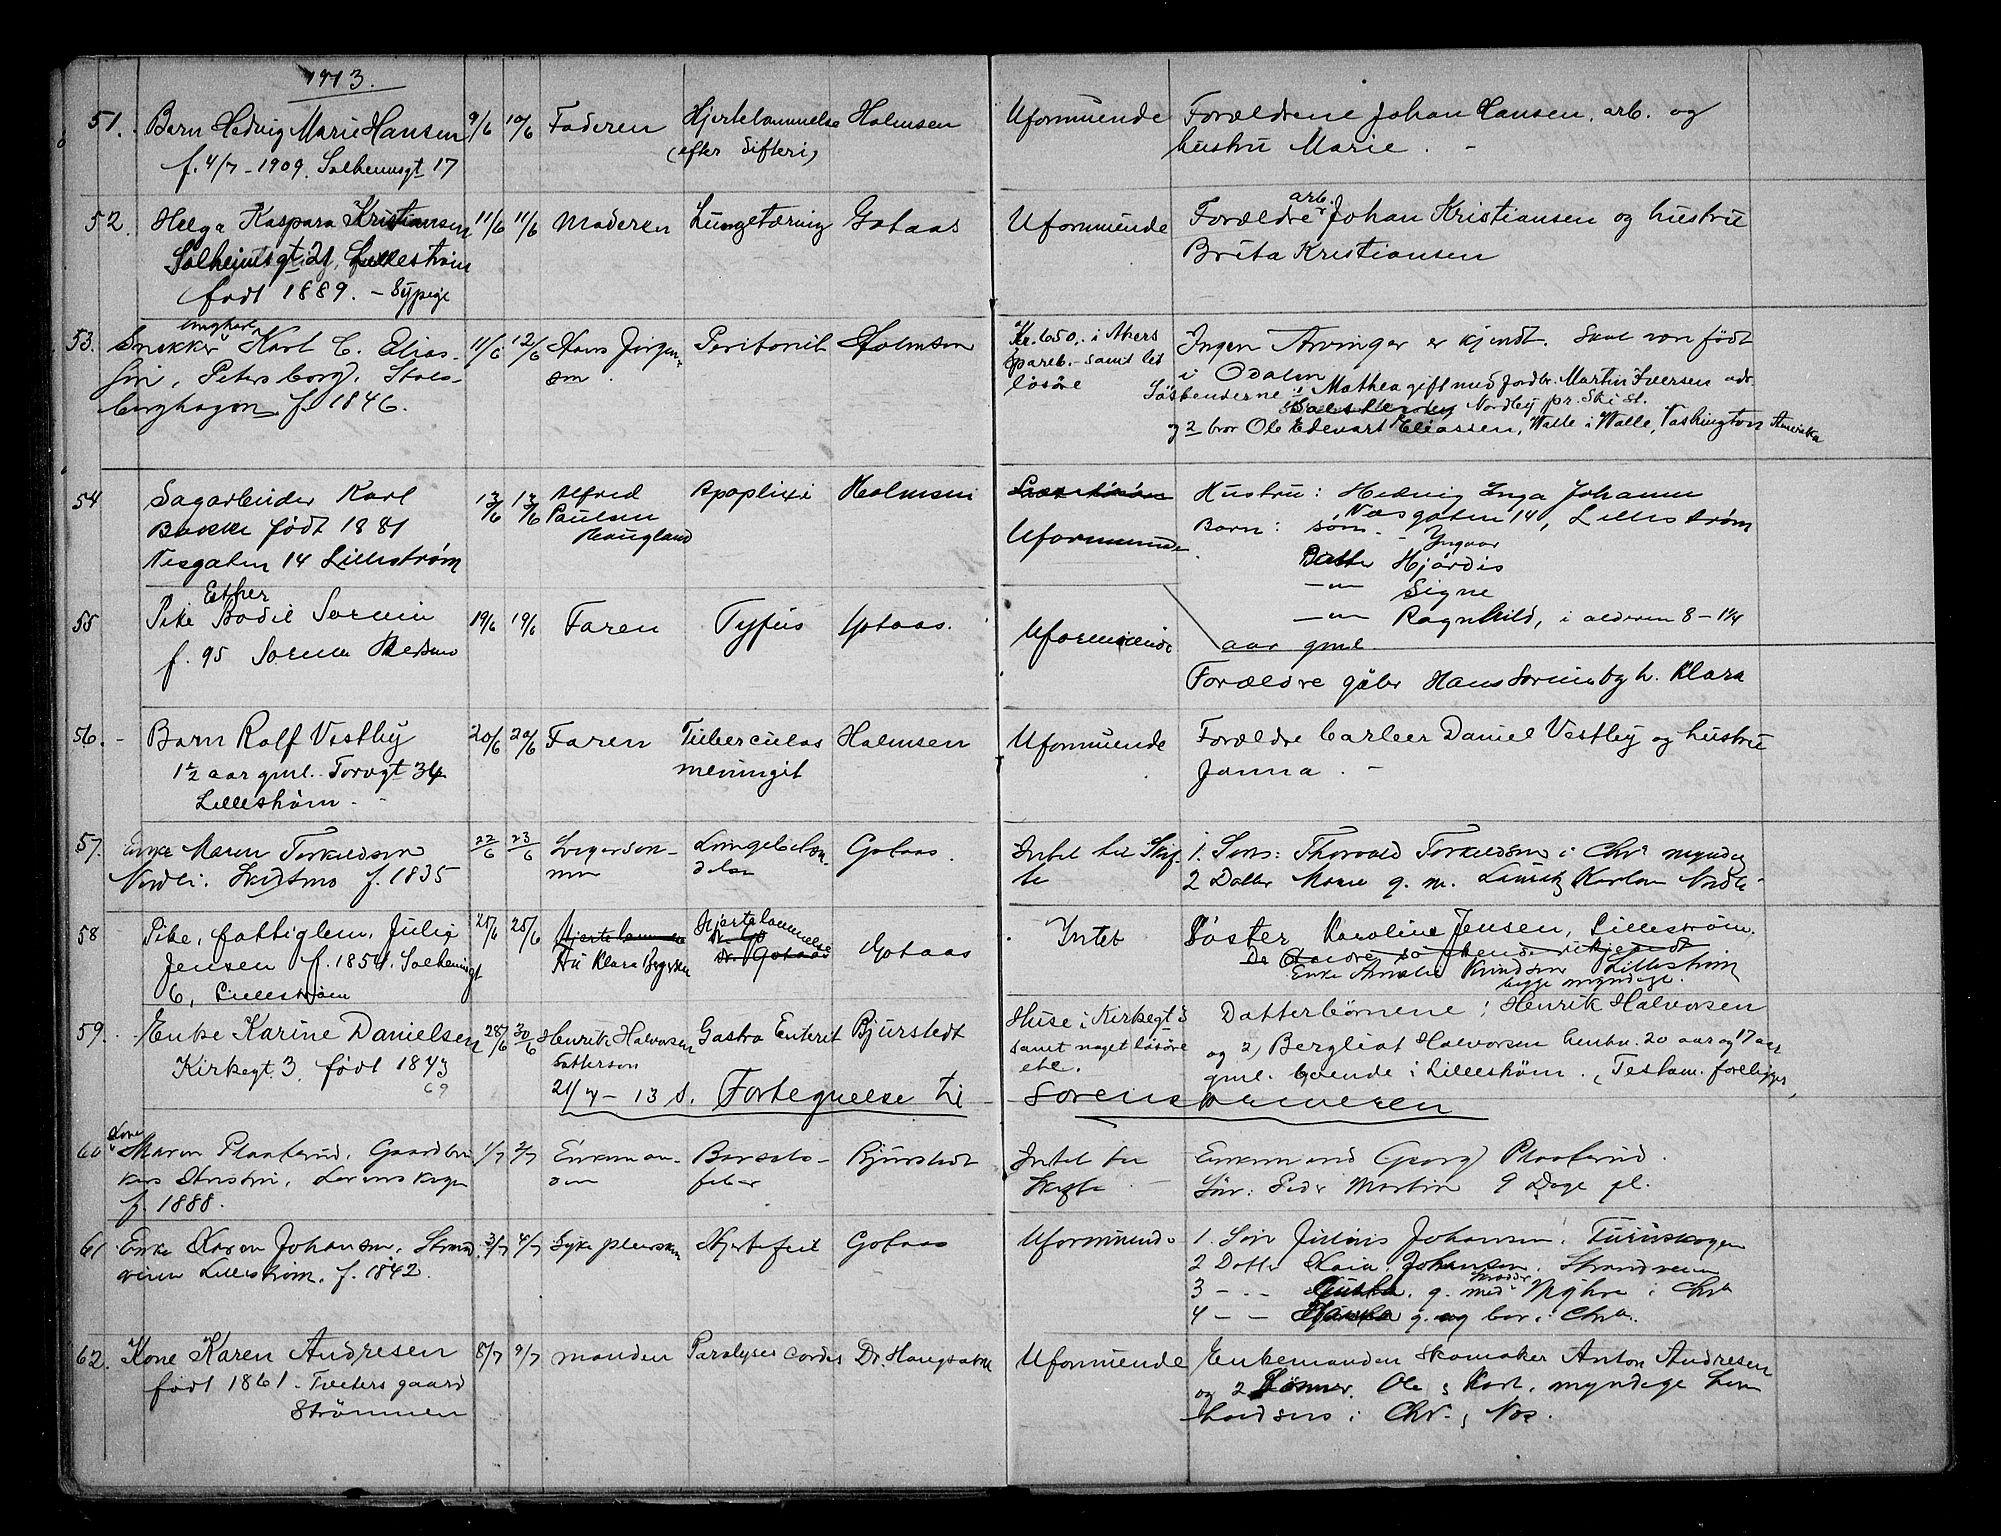 1913.
51. Barn Hedvig Marie Hansen 9/6 10/6 Faderen Hjertelammelse Holmsen Uformuende Forældrene Johan Hansen, arb. og
f. 4/7 - 1909. Solheimsgt 17 (efter difteri) hustru Marie. -
52. Helga Kaspara Kristiansen 11/6 11/6 Moderen Lungetæring Gotaas Uformuende Forældre arb. Johan Kristiansen og hustru
Solheimsgt. 21, Lillestrøm Brita Kristiansen
født 1889. - Sypige
53. Snekker ungkarl Karl C. Elias- 11/6 12/6 Hans Jørgen- Peritonit Holmsen Kr. 650,- i Akers Ingen Arvinger er kjendt. Skal være født
sen, Petersborg, Stals- sen. Spareb. - samt lidt i Odalen
berghagen f. 1846. løsøre Søskenderne 1 Mathea gift med jordbr. Martin Iversen adr.
Nordby pr. Ski st.
og 2 bror Ole Edevart Eliassen, Walle i Walle, Vashington Amerika
54 Sagarbeider Karl 13/6 13/6 Alfred Apoplexi Holmsen Hustru: Hedvig Inga Johanne
Bakke født 1881 Paulsen Uformuende Næsgaten 14, Lillestrøm
Nesgaten 14 Lillestrøm Haugland Barn: søn - Yngvar
Datter Hjørdis
—„— Signe
—„— Ragnhild, i alderen 8 - 1 1/4
aar gml.
55 Pike Esther Bodil Sørum 19/6 19/6 Faren Tyfus Gotaas. Uformuende
f. 95 Sørum Skedsmo Forældre gbr Hans Sørum og h. Klara
56. - Barn Rolf Vestby 20/6 20/6 Faren Tuberculøs Holmsen Uformuende Forældre Daniel Vestby og hustru
1 1/2 aar gml. Torvgt 34 meningit Janna. -
Lillestrøm. -
57. Enke Maren Torkildsen 22/6 23/6 Svigersøn- Lungebetæn- Gotaas. Intet til Skif- 1. Søn: Thorvald Torkildsen i Chr. myndig
Nordli. Skedsmo f. 1835 nen delse te 2 Datter Marie g. m. Lauritz Karlsen Nordli
58 Pike, fattiglem, Julie 25/6 25/6 Hjertelammelse Gotaas Intet Søster Karoline Jensen, Lillestrøm.
Jensen f. 1854. Solheimsgt Fru Klara Dr. Gotaas De andre søskende ukjendt
6, Lillestrøm Enke Amalie Knudsen Lillestrøm
begge myndige.
59. Enke Karine Danielsen 28/6 30/6 Henrik Halvorsen Gastro Enterit Bjurstedt Huse i Kirkegt 3 Datterbørnene 1 Henrik Halvorsen
Kirkegt. 3, født 1843 Dattersøn samt noget løsøre og 2, Bergliot Halvorsen henhv. 20 aar og 17 aar
69 etc. gml. boende i Lillestrøm. (Testam. foreligger,
21/7 - 13 S. Fortegnelse til Sorenskriveren
60 Kone Maren Plaaterud, Gaardbru- 1/7 2/7 Enkeman- Barsels- Bjurstedt Intet til Enkemand Georg Plaaterud.
kers Hustru, f. 1888. nen feber Skifte - Søn: Peder Martin 9 Dage gl.
61 Enke Karen Johansen, Strand- 3/7 4/7 Sykepleiersken Hjertefeil Gotaas Uformuende 1. Søn Julius Johansen, Furuskogen
veien Lillestrøm. f. 1842. 2 Datter Kaia Johansen. Strandveien
3 - - - g. med Skrædder Myhre i Chra
4 - - g. og bor i Chra.
62. Kone Karen Andresen 8/7 9/7 manden Paralyses cordis Dr. Haugsøen Uformuende Enkemanden skomaker Anton Andresen
født 1861. Tveters gaard og 2 Sønner, Ole & Karl, myndige hen-
Strømmen holdsvis i Chr. & Næs.